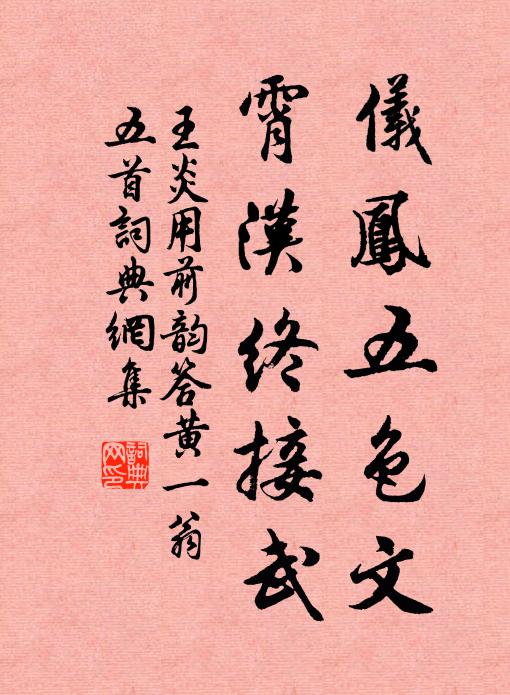 儀鳳五色文
霄漢終接武
王炎用前韵答黄一翁
五首詞典網集
詞典網印